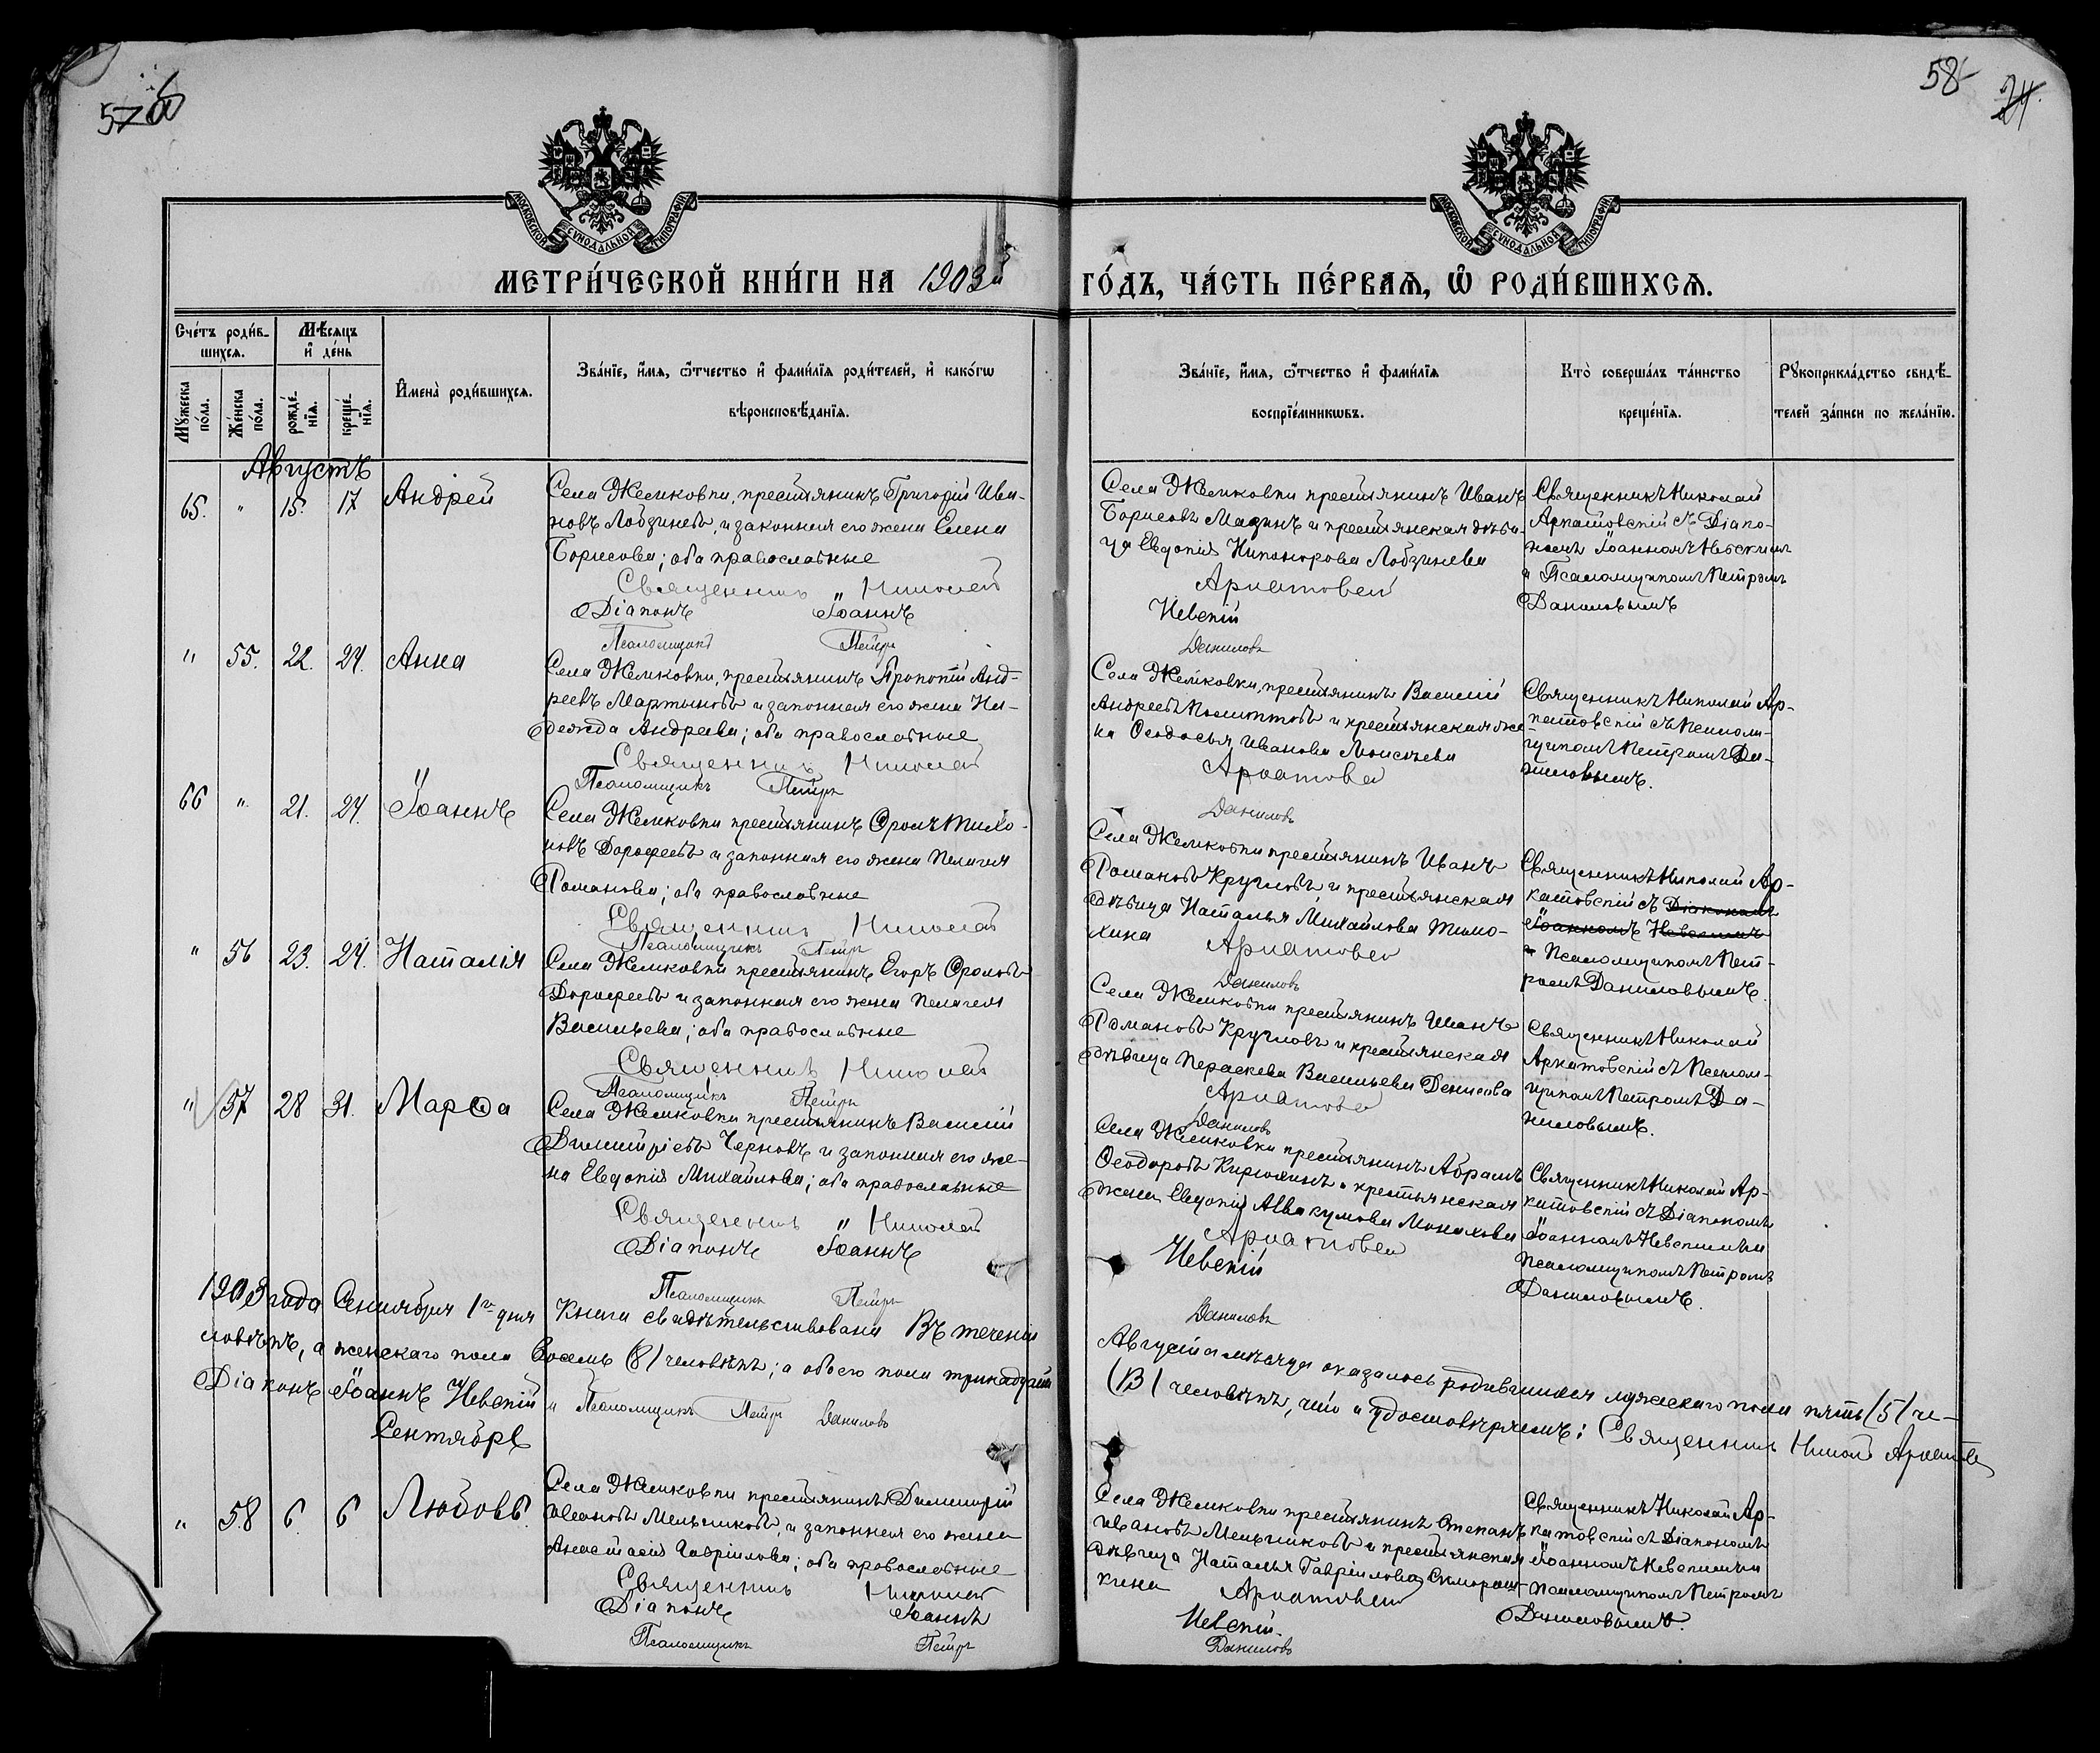 58
24.
МОСКОВСКОЙ СѴНОДАЛЬНОЙ ТИПОГРАФІИ
МОСКОВСКОЙ СѴНОДАЛЬНОЙ ТИПОГРАФІИ
МЕТРИ́ЧЕСКОЙ КНИ́ГИ НА 1903й ГО́ДЪ, ЧА́СТЬ ПЕ́РВАѦ, Ѡ҆ РОДИ́ВШИХСѦ.
Сче́тъ роди́в-
шихсѧ.
Мѣ́сѧцъ
и҆ де́нь
Мꙋ́жеска
по́ла.
Же́нска
по́ла.
рожде́-
нїѧ.
креще́-
нїѧ.
И҆мена̀ роди́вшихсѧ.
Зва́нїе, и҆́мѧ, ѻ҆́тчество и҆ фами́лїѧ роди́телей, и҆ како́гѡ
вѣроисповѣ́данїѧ.
Зва́нїе, и҆́мѧ, ѻ҆́тчество и҆ фами́лїѧ
воспрїе́мникѡвъ.
Кто̀ соверша́лъ та́инство
креще́нїѧ.
Рꙋкоприкла́дство свидѣ́-
телей за́писи по жела́нїю.
Августъ
65. " 15. 17 Андрей
Села Жемковки, крестьянинъ Григорій Ива-
новъ Лобзиневъ, и законная его жена Елена
Борисова; оба православные
Священникъ Николай
Діаконъ Іоаннъ
Псаломщикъ Петръ
Села Жемковки крестьянинъ Иванъ
Борисовъ Мазинъ и крестьянская дѣви-
ца Евдокія Никонорова Лобзинева
Аркатовскій
Невскій
Даниловъ
Священникъ Николай
Аркатовскій съ Діако-
номъ Іоанномъ Невскимъ
и Псаломщикомъ Петромъ
Даниловымъ
" 55. 22. 24. Анна
Села Жемковки, крестьянинъ Прокопій Анд-
реевъ Мартыновъ и законная его жена На-
дежда Андреева; оба православные
Священникъ Николай
Псаломщикъ Петръ
Села Жемковки, крестьянинъ Василій
Андреевъ и крестьянская же-
на Ѳеодосья Иванова Моисѣева
Аркатовскій
Даниловъ
Священникъ Николай Ар-
катовскій съ Псалом-
щикомъ Петромъ Да-
ниловымъ.
66 " 21. 24. Іоаннъ
Села Жемковки крестьянинъ Фролъ Тихо-
новъ Дорофеевъ и законная его жена Пелагея
Романова; оба православные
Священникъ Николай
Псаломщикъ Петръ
Села Жемковки крестьянинъ Иванъ
Романовъ Кругловъ и крестьянская
дѣвица Наталья Михайлова Тимо-
хина Аркатовскій
Даниловъ
Священникъ Николай Ар-
катовскій съ Діакономъ
Іоанномъ Невскимъ
и Псаломщикомъ Пет-
ромъ Даниловымъ.
" 56 23. 24. Наталія
Села Жемковки крестьянинъ Егоръ Фроловъ
Дорофеевъ и законная его жена Пелагея
Васильева; оба православные
Священникъ Николай
Псаломщикъ Петръ
Села Жемковки крестьянинъ Иванъ
Романовъ Кругловъ и крестьянская
дѣвица Параскева Васильева Денисова
Аркатовскій
Даниловъ
Священникъ Николай
Аркатовскій съ Псалом-
щикомъ Петромъ Да-
ниловымъ.
" 57 28 31. Марѳа
Села Жемковки крестьянинъ Василій
Димитріевъ Черновъ и законная его же-
на Евдокія Михайлова; оба православные
Священникъ " Николай
Діаконъ Іоаннъ
Псаломщикъ Петръ
Села Жемковки крестьянинъ Абрамъ
Ѳеодоровъ Кирюхинъ и крестьянская
жена Евдокія Аввакумова Монахова
Аркатовскій
Невскій
Даниловъ
Священникъ Николай Ар-
катовскій съ Діакономъ
Іоанномъ Невскимъ и
Псаломщикомъ Петромъ
Даниловымъ.
1903 года Сентября 1го дня Книга свидѣтельствована Въ теченіи Августа мѣсяца оказалось родившихся мужескаго пола пять (5) че-
ловѣкъ, а женскаго пола Восемь (8) человѣкъ; а обоего пола тринадцать (13) человѣкъ, что и удостовѣряемъ: Священникъ Никол Аркатов
Діаконъ Іоаннъ Невскій и Псаломщикъ Петръ Даниловъ
Сентябрь
" 58 6. 6 Любовь.
Села Жемковки крестьянинъ Димитрій
Ивановъ Мельниковъ, и законная его жена
Анастасія Гавріилова; оба православные
Священникъ Николай
Діаконъ Іоаннъ
Псаломщикъ Петръ
Села Жемковки крестьянинъ Степанъ
Ивановъ Мельниковъ и крестьянская
дѣвица Наталья Гавріилова Скморош-
кина Аркатовскій
Невскій.
Даниловъ
Священникъ Николай Ар-
катовскій съ Діакономъ
Іоанномъ Невскимъ и
Псаломщикомъ Петромъ
Даниловымъ.